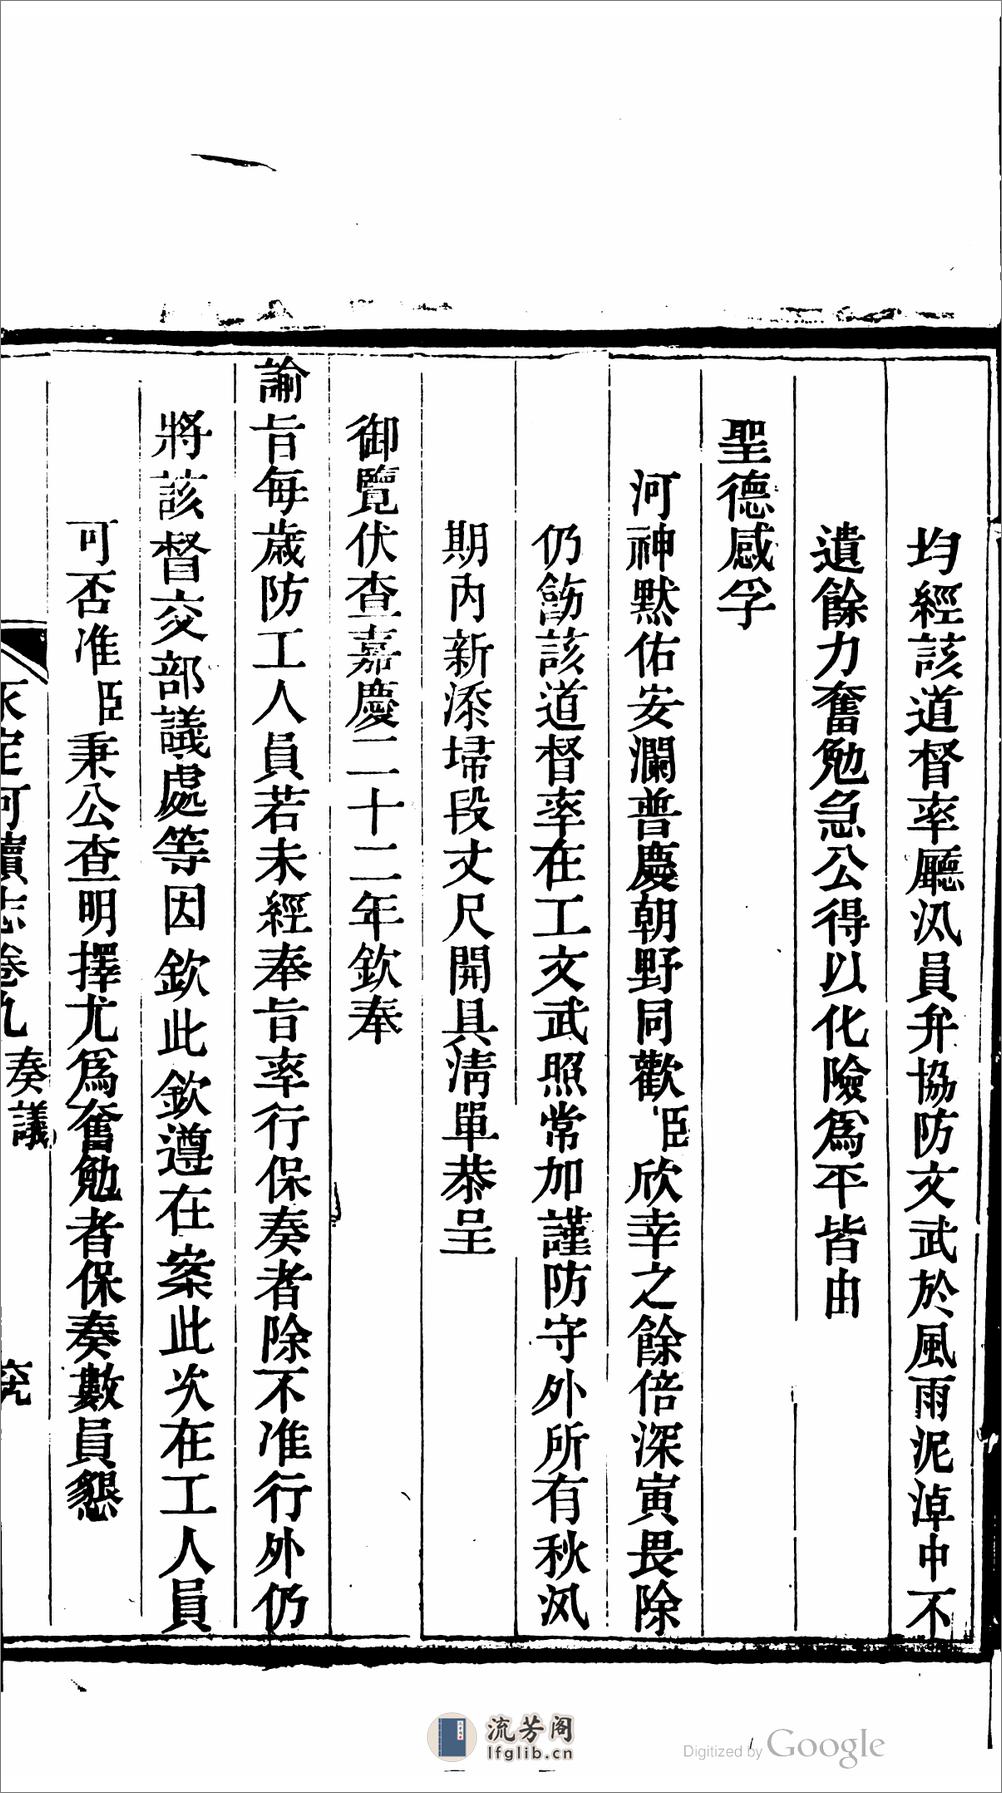 均經該道督率廳汛員弁協防文武於風雨泥淖中不
遺餘力奮勉急公得以化險爲平皆由
聖德感孚
河神默佑安瀾普慶朝野同歡臣欣幸之餘倍深寅畏除
仍飭該道督率在工文武照常加謹防守外所有秋汛
期內新添埽段丈尺開具清單恭呈
御覽伏查嘉慶二十二年欽奉
諭旨每歲防工人員若未經奉旨率行保奏者除不准行外仍
將該督交部議處等因欽此欽遵在案此次在工人員
可否准臣秉公查明擇尤爲奮勉者保奏數員懇
永定河續志卷九 奏議
流芳阁
lfglib.cn
Digitized by Google